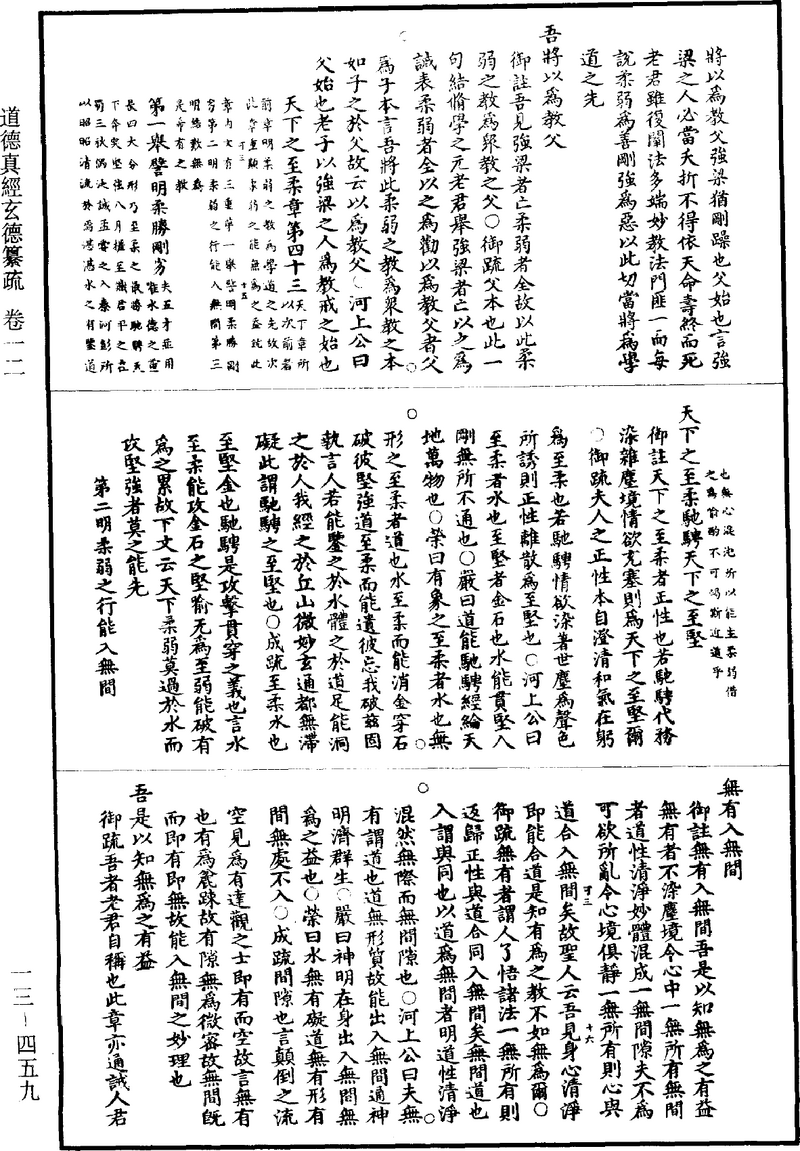 將以為教父強梁猶剛躁也父始也言強
梁之人必當夭折不得依天命壽終而死
老君雖復闡法多端妙教法門匪一而每
說柔弱為善剛強為惡以此切當將為學
道之先
吾將以為教父
御註吾見強梁者亡柔弱者全故以此柔
弱之教為眾教之父○御疏父本也此一
句結脩學之元老君舉強梁者亡以之為
誡表柔弱者全以之為勸以為教父者父
為子本言吾將此柔弱之教為眾教之本
如子之於父故云以為教父○河上公曰
父始也老子以強梁之人為教戒之始也
天下之至柔章第四十三天下章所以次前者
前章明柔弱之教為學道之先故次
此章重顯柔弱之能無為之益就此
章內文有三重第一舉譬明柔勝剛
劣第二明柔弱之行能入無間第三
明結歎無為
是希有之教
第一舉譬明柔勝剛劣
夫五才並用
唯水德之靈
長四大分形乃至柔之
以昭昭清流
天下之至柔馳騁天下之至堅
御註天下之至柔者正性也若馳騁代務
染雜塵境情欲充塞則為天下之至堅爾
○御疏夫人之正性本自澄清和氣在躬
為至柔也若馳騁情欲染著世塵為聲色
所誘則正性離散為至堅也○河上公曰
至柔者水也至堅者金石也水能貫堅入
剛無所不通也○嚴曰道能馳騁經綸天
地萬物也○榮曰有象之至柔者水也無
形之至柔者道也水至柔而能消金穿石
破彼堅強道至柔而能遣彼忘我破茲固
執言人若能鑒之於水體之於道足能洞
之於人我經之於丘山微妙玄通都無滯
礙此謂馳騁之至堅也○成疏至柔水也
至堅金也馳騁是攻擊貫穿之義也言水
至柔能攻金石之堅喻无為至弱能破有
為之累故下文云天下柔弱莫過於水而
攻堅強者莫之能先
第二明柔弱之行能入無間
無有入無間
御註無有入無間吾是以知無為之有益
無有者不染塵境令心中一無所有無間
者道性清淨妙體混成一無間隙夫不為
可欲所亂令心境俱靜一無所有則心與
道合入無間矣故聖人云吾見身心清淨
即能合道是知有為之教不如無為爾○
御疏無有者謂人了悟諸法一無所有則
返歸正性與道合同入無間矣無間道也
入謂與同也以道為無間者明道性清淨
混然無際而無間隙也○河上公曰夫無
有謂道也道無形質故能出入無間通神
明濟群生○嚴曰神明在身出入無間無
為之益也○榮曰水無有礙道無有形有
間無處不入○成疏間隙也言顛倒之流
空見為有達觀之士即有而空故言無有
也有為麁踈故有隙無為微密故無間既
而即有即無故能入無間之妙理也
吾是以知無為之有益
御疏吾者老君自稱也此章亦通誡人君
道德真經玄德纂疏 卷一二
一三-四五九